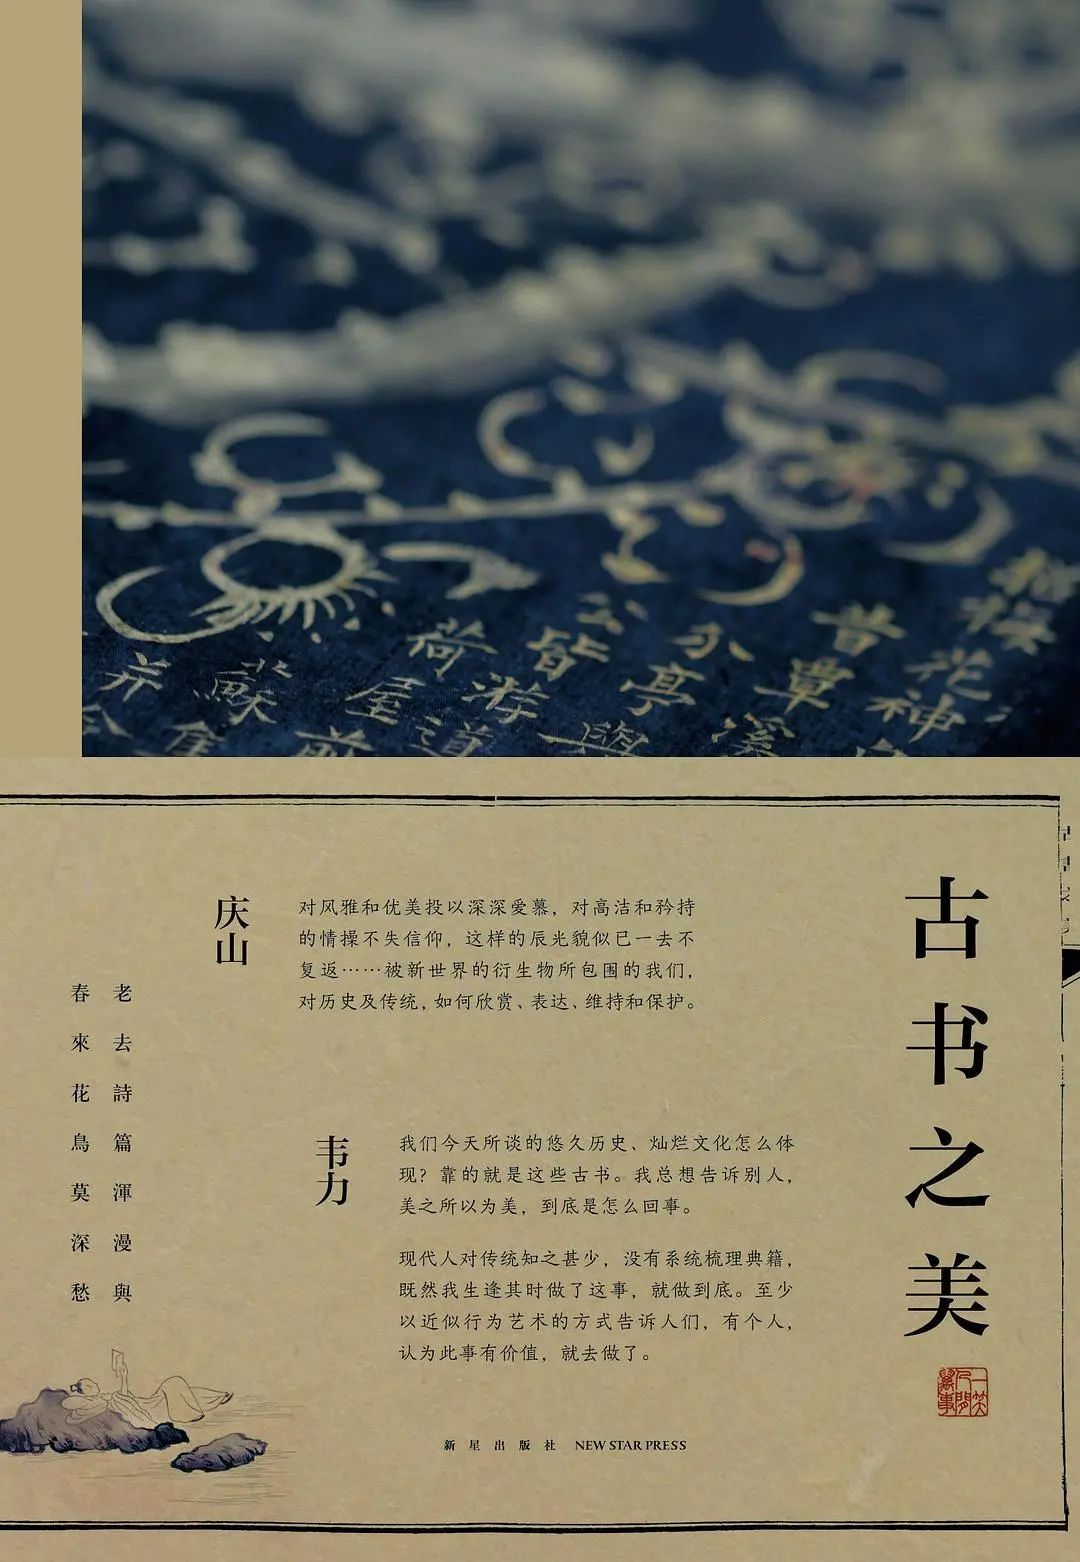 古书之美
庆山
对风雅和优美投以深深爱慕，对高洁和矜持
的情操不失信仰，这样的辰光貌似已一去不
复返……被新世界的衍生物所包围的我们，
对历史及传统，如何欣赏、表达、维持和保护。
韦力
我们今天所谈的悠久历史、灿烂文化怎么体
现？靠的就是这些古书。我总想告诉别人，
美之所以为美，到底是怎么回事。
现代人对传统知之甚少，没有系统梳理典籍，
既然我生逢其时做了这事，就做到底。至少
以近似行为艺术的方式告诉人们，有个人，
认为此事有价值，就去做了。
老去詩篇渾漫與
春來花鳥莫深愁
一笑人間萬事
新星出版社 NEW STAR PRESS